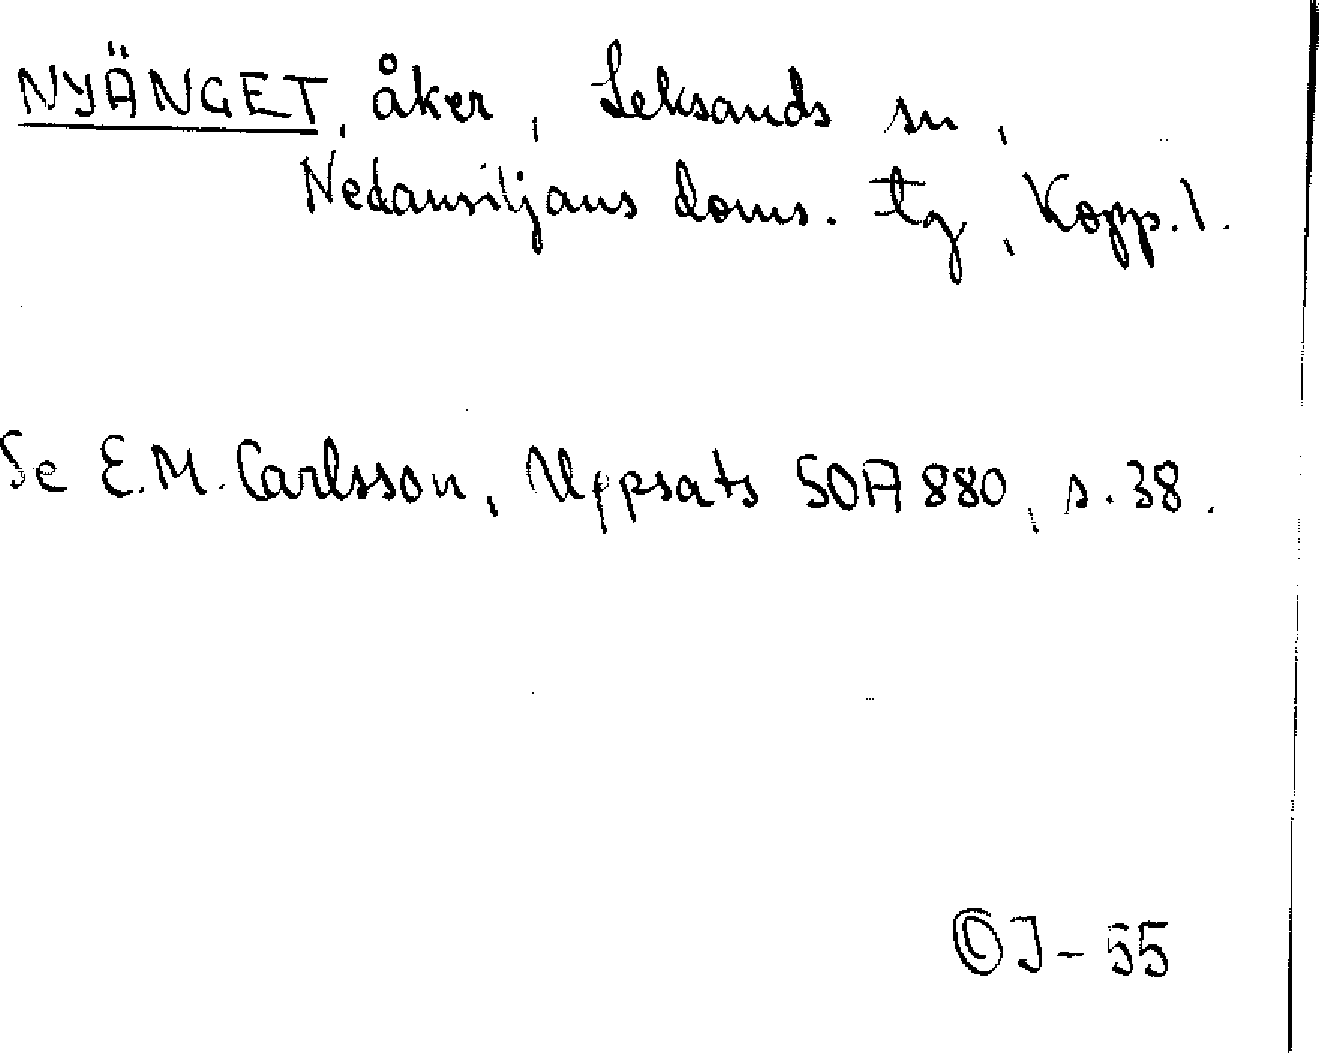 NYÄNGET, åker, Leksands sn,
Nedansiljans doms. tg, Kopp. l.
Se E.M. Carlsson, Uppsats SOA 880, s. 38.
J-55